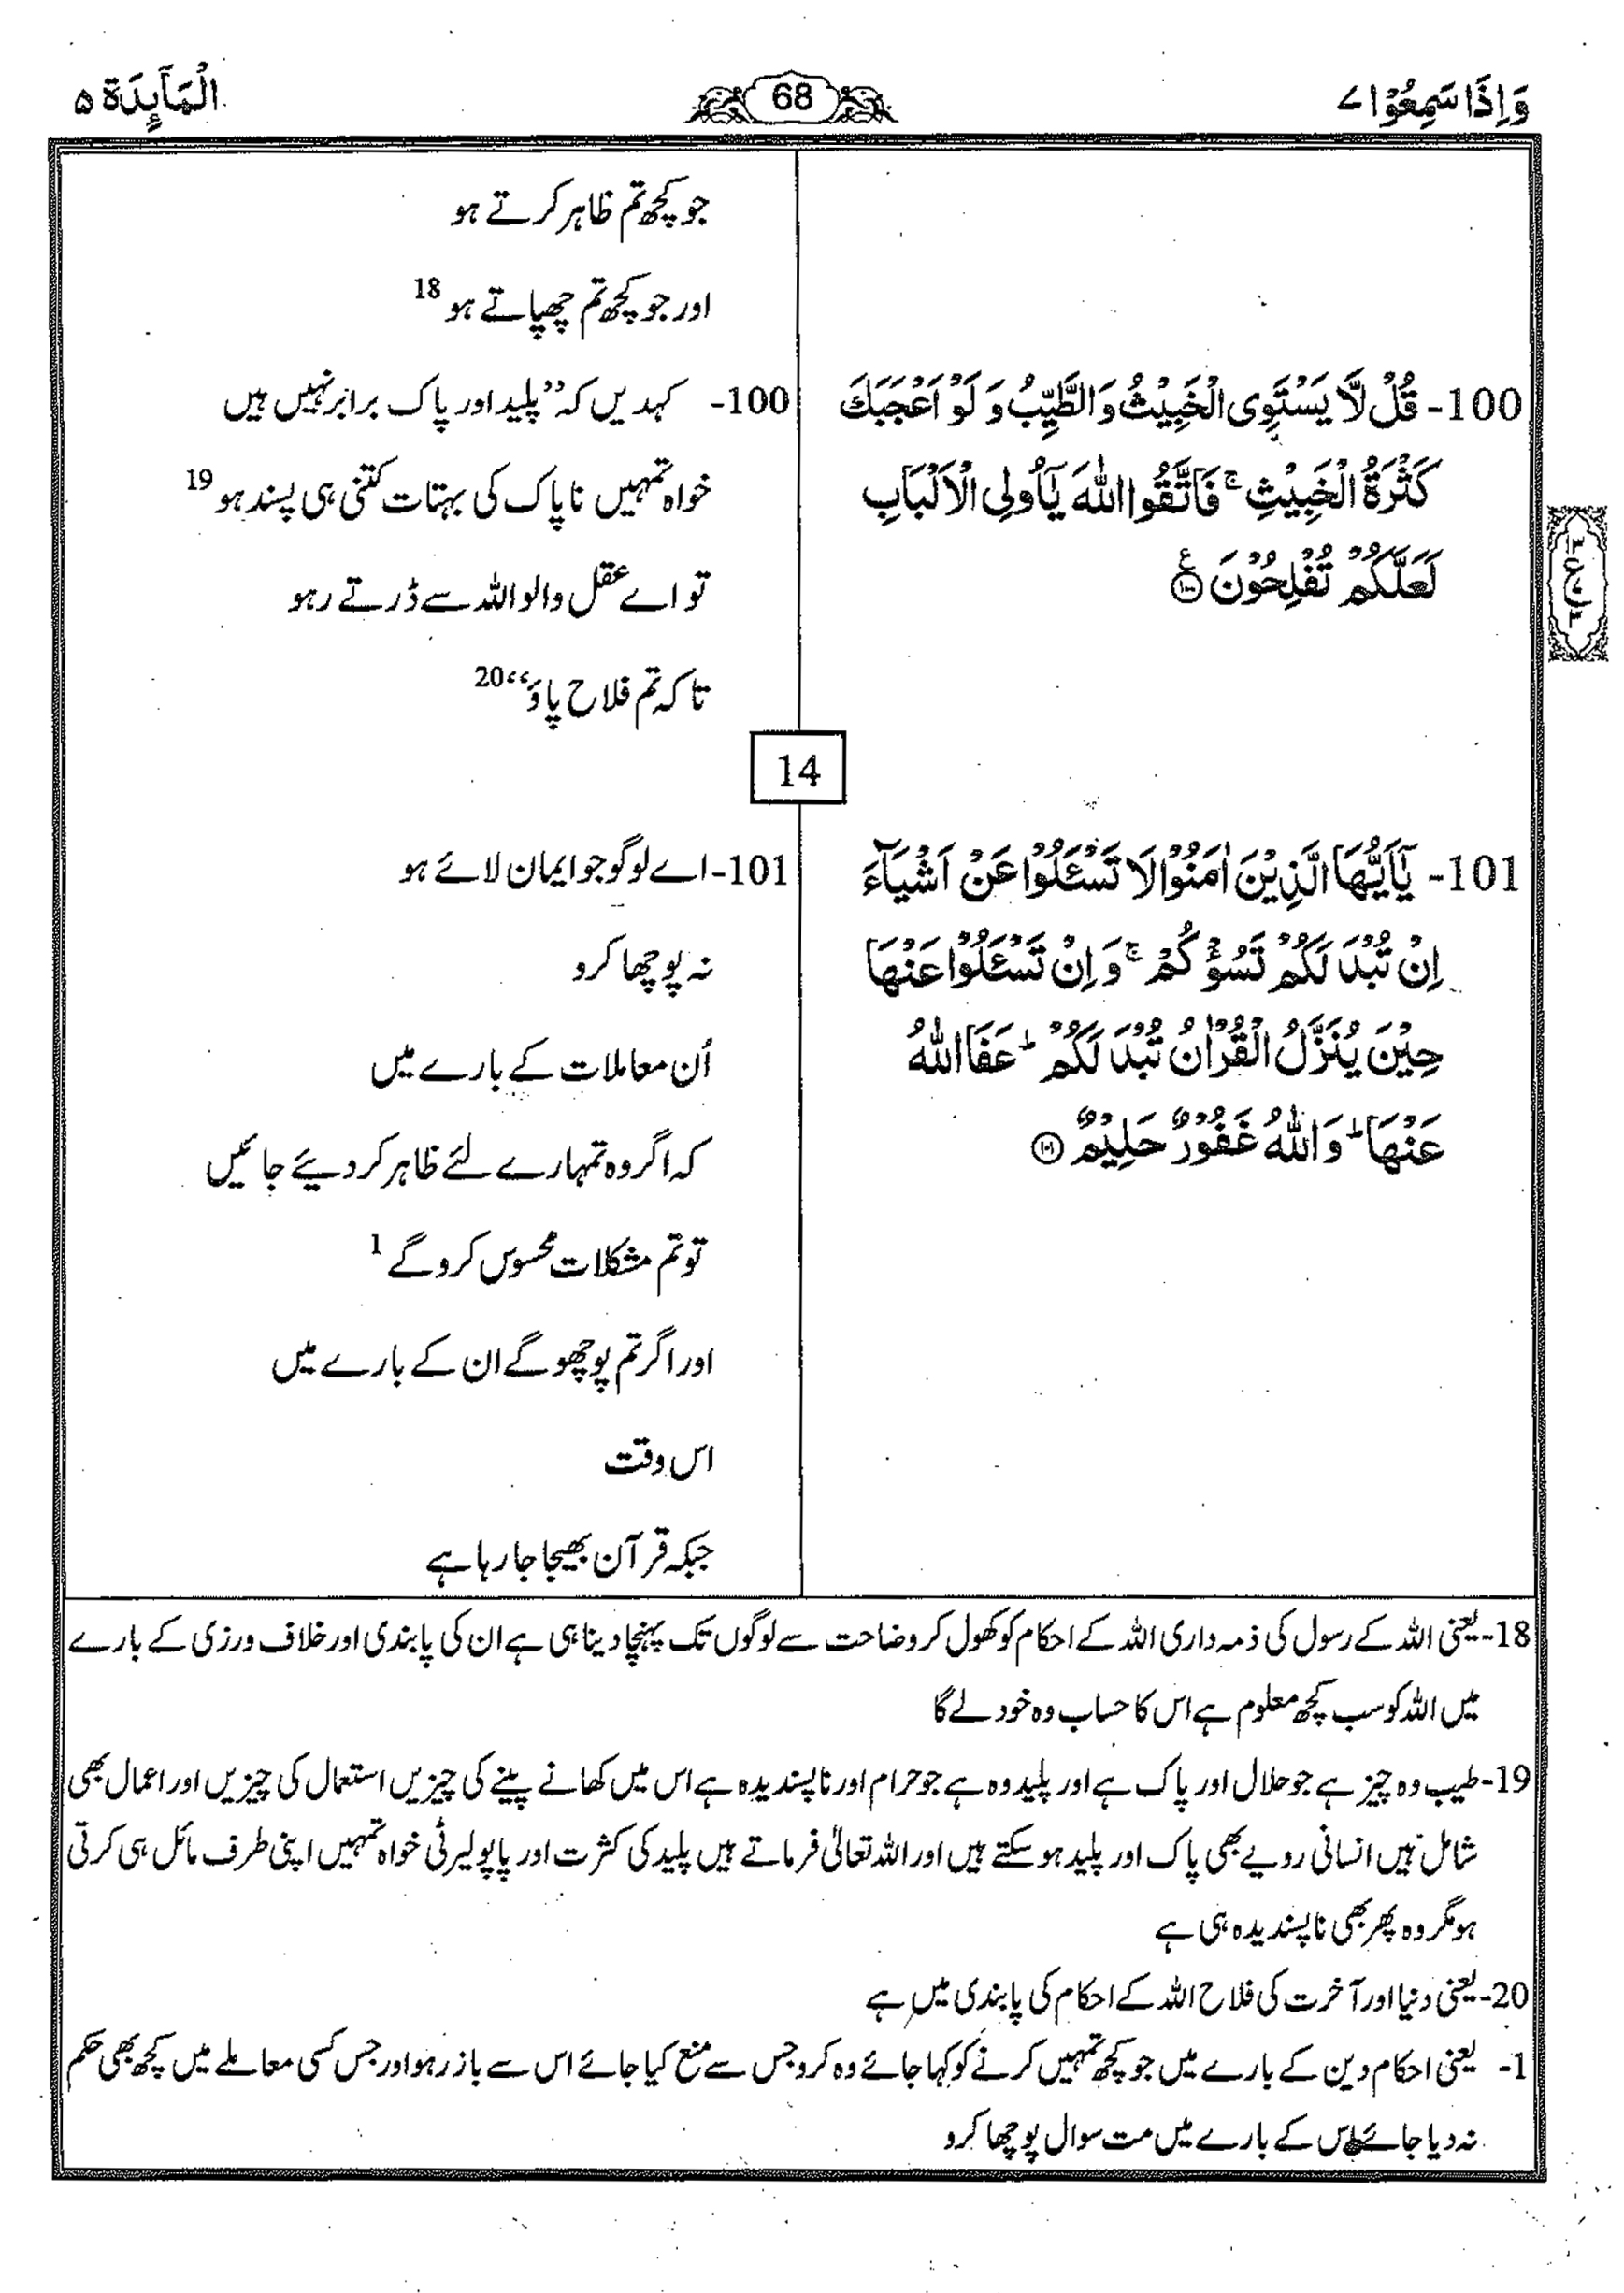 وَاِذَا سَمِعُوْا ٧
68
الْمَآئِدَة ٥
جو کچھ تم ظاہر کرتے ہو
اور جو کچھ تم چھپاتے ہو 18
100- قُلْ لَّا يَسْتَوِى الْخَبِيْثُ وَالطَّيِّبُ وَ لَوْ اَعْجَبَكَ
كَثْرَةُ الْخَبِيْثِ ۚ فَاتَّقُوا اللّٰهَ يٰۤاُولِى الْاَلْبَابِ
لَعَلَّكُمْ تُفْلِحُوْنَ ۧ ﴿١٠٠﴾
100- کہدیں کہ ”پلید اور پاک برابر نہیں ہیں
خواہ تمہیں ناپاک کی بہتات کتنی ہی پسند ہو 19
تو اے عقل والو اللہ سے ڈرتے رہو
تاکہ تم فلاح پاؤ“ 20
١٣
ع
٣
14
101- يٰۤاَيُّهَا الَّذِيْنَ اٰمَنُوْا لَا تَسْـَٔلُوْا عَنْ اَشْيَآءَ
اِنْ تُبْدَ لَكُمْ تَسُؤْكُمْ ۚ وَ اِنْ تَسْـَٔلُوْا عَنْهَا
حِيْنَ يُنَزَّلُ الْقُرْاٰنُ تُبْدَ لَكُمْ ؕ عَفَا اللّٰهُ
عَنْهَا ؕ وَ اللّٰهُ غَفُوْرٌ حَلِيْمٌ ﴿١٠١﴾
101- اے لوگو جو ایمان لائے ہو
نہ پوچھا کرو
اُن معاملات کے بارے میں
کہ اگر وہ تمہارے لئے ظاہر کر دیئے جائیں
تو تم مشکلات محسوس کرو گے 1
اور اگر تم پوچھو گے ان کے بارے میں
اس وقت
جبکہ قرآن بھیجا جا رہا ہے
18- یعنی اللہ کے رسول کی ذمہ داری اللہ کے احکام کو کھول کر وضاحت سے لوگوں تک پہنچا دینا ہی ہے ان کی پابندی اور خلاف ورزی کے بارے
میں اللہ کو سب کچھ معلوم ہے اس کا حساب وہ خود لے گا
19- طیب وہ چیز ہے جو حلال اور پاک ہے اور پلید وہ ہے جو حرام اور ناپسندیدہ ہے اس میں کھانے پینے کی چیزیں استعمال کی چیزیں اور اعمال بھی
شامل ہیں انسانی رویے بھی پاک اور پلید ہو سکتے ہیں اور اللہ تعالیٰ فرماتے ہیں پلید کی کثرت اور پاپولیرٹی خواہ تمہیں اپنی طرف مائل ہی کرتی
ہو مگر وہ پھر بھی ناپسندیدہ ہی ہے
20- یعنی دنیا اور آخرت کی فلاح اللہ کے احکام کی پابندی میں ہے
1- یعنی احکام دین کے بارے میں جو کچھ تمہیں کرنے کو کہا جائے وہ کرو جس سے منع کیا جائے اس سے باز رہو اور جس کسی معاملے میں کچھ بھی حکم
نہ دیا جائے اس کے بارے میں مت سوال پوچھا کرو